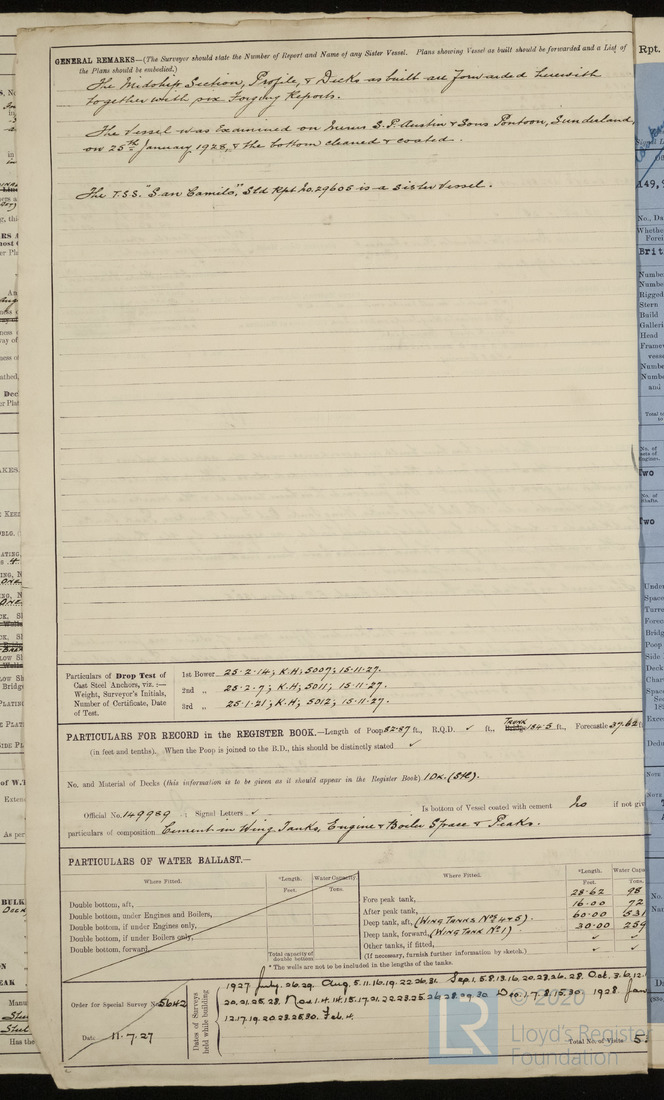 GENERAL REMARKS—(The Surveyor should state the Number of Report and Name of any Sister Vessel. Plans showing Vessel as built should be forwarded and a List of
the Plans should be embodied.)
The Midship Section, Profile, & Decks as built are forwarded herewith
together with six Forging Reports.
The Vessel was Examined on Messrs S.P. Austin & Sons Pontoon, Sunderland,
on 25th January, 1928, & the bottom cleaned & coated.
The T.S.S. "San Camilo," Sld Rpt No. 29605 is a sister vessel.
Particulars of Drop Test of
Cast Steel Anchors, viz.:—
Weight, Surveyor's Initials,
Number of Certificate, Date
of Test.
1st Bower 25-2-14; K.H; 5007; 15-11-27.
2nd „ 25-2-7; K.H; 5011; 15-11-27.
3rd „ 25-1-21; K.H; 5012; 15-11-27.
PARTICULARS FOR RECORD in the REGISTER BOOK.—Length of Poop 52·87 ft., R.Q.D. ✓ ft., Trunk 184·5 ft., Forecastle 37·62
(in feet and tenths). When the Poop is joined to the B.D., this should be distinctly stated ✓
No. and Material of Decks (this information is to be given as it should appear in the Register Book) 1 Dk. (Stl).
Official No. 149989 ; Signal Letters ✓ Is bottom of Vessel coated with cement No if not giv
particulars of composition Cement in Wing Tanks, Engine & Boiler Space & Peaks.
PARTICULARS OF WATER BALLAST.—
Where Fitted. *Length. Water Capacity.
Feet. Tons.
Double bottom, aft,
Double bottom, under Engines and Boilers,
Double bottom, if under Engines only,
Double bottom, if under Boilers only,
Double bottom, forward,
Total capacity of
double bottom
Where Fitted. *Length. Water Capa
Feet. Tons.
Fore peak tank, 28·62 98
After peak tank, 16·00 72
Deep tank, aft, (Wing Tanks Nos 4 & 5). 60·00 531
Deep tank, forward, (Wing Tank No 1) 30·00 259
Other tanks, if fitted, ✓ ✓
(If necessary, furnish further information by sketch.) ✓ ✓
* The wells are not to be included in the lengths of the tanks.
Order for Special Survey No. 5642
Date 11.7.27
Dates of Surveys
held while building
1927 July. 26.29. Aug. 5.11.16.19.22.26.31. Sep. 1.5.8.13.16.20.23.26.28. Oct. 3.6.12.
20.21.25.28. Nov. 1.4.14.15.17.21.22.23.25.26.28.29.30. Dec. 1.7.8.15.30. 1928. Jan
12.17.19.20.23.25.30. Feb. 4.
Total No. of Visits 5
© 2020
LR
Lloyd's Register
Foundation
Rpt.
149,9
Brit
Two
Two